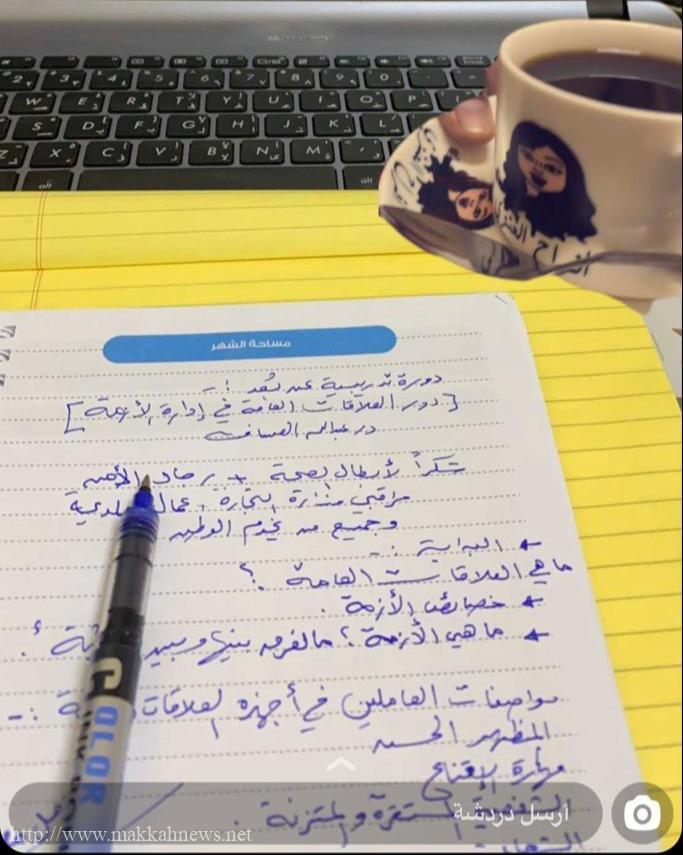 مساحة الشهر
دورة تدريبية عن بُعد :-
[ دور العلاقات العامة في إدارة الأزمة ]
شكراً لأبطال الصحة + رجال الأمن
مراقبي وزارة التجارة، عمال البلدية
وجميع من يخدم الوطن
← البداية :-
ما هي العلاقات العامة ؟
← خصائص الأزمة .
← ما هي الأزمة ؟ مالفرق بينها وبين
مواصفات العاملين في أجهزة العلاقات :-
المظهر الحسن
مهارة الإقناع
المستقرة والمتزنة .
أرسل دردشة
COLOR
http://www.makkahnews.net